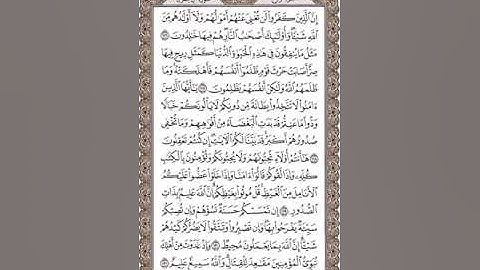 إِنَّ ٱلَّذِينَ كَفَرُوا۟ لَن تُغْنِىَ عَنْهُمْ أَمْوَٰلُهُمْ وَلَآ أَوْلَٰدُهُم مِّنَ
ٱللَّهِ شَيْـًٔا وَأُو۟لَٰٓئِكَ أَصْحَٰبُ ٱلنَّارِ هُمْ فِيهَا خَٰلِدُونَ ١١٦
مَثَلُ مَا يُنفِقُونَ فِى هَٰذِهِ ٱلْحَيَوٰةِ ٱلدُّنْيَا كَمَثَلِ رِيحٍ فِيهَا
صِرٌّ أَصَابَتْ حَرْثَ قَوْمٍ ظَلَمُوٓا۟ أَنفُسَهُمْ فَأَهْلَكَتْهُ وَمَا
ظَلَمَهُمُ ٱللَّهُ وَلَٰكِنْ أَنفُسَهُمْ يَظْلِمُونَ ١١٧ يَٰٓأَيُّهَا ٱلَّذِينَ
ءَامَنُوا۟ لَا تَتَّخِذُوا۟ بِطَانَةً مِّن دُونِكُمْ لَا يَأْلُونَكُمْ خَبَالًا
وَدُّوا۟ مَا عَنِتُّمْ قَدْ بَدَتِ ٱلْبَغْضَآءُ مِنْ أَفْوَٰهِهِمْ وَمَا تُخْفِى
صُدُورُهُمْ أَكْبَرُ قَدْ بَيَّنَّا لَكُمُ ٱلْـَٔايَٰتِ إِن كُنتُمْ تَعْقِلُونَ
١١٨ هَٰٓأَنتُمْ أُو۟لَآءِ تُحِبُّونَهُمْ وَلَا يُحِبُّونَكُمْ وَتُؤْمِنُونَ بِٱلْكِتَٰبِ
كُلِّهِۦ وَإِذَا لَقُوكُمْ قَالُوٓا۟ ءَامَنَّا وَإِذَا خَلَوْا۟ عَضُّوا۟ عَلَيْكُمُ
ٱلْأَنَامِلَ مِنَ ٱلْغَيْظِ قُلْ مُوتُوا۟ بِغَيْظِكُمْ إِنَّ ٱللَّهَ عَلِيمٌۢ بِذَاتِ
ٱلصُّدُورِ ١١٩ إِن تَمْسَسْكُمْ حَسَنَةٌ تَسُؤْهُمْ وَإِن تُصِبْكُمْ
سَيِّئَةٌ يَفْرَحُوا۟ بِهَا وَإِن تَصْبِرُوا۟ وَتَتَّقُوا۟ لَا يَضُرُّكُمْ كَيْدُهُمْ
شَيْـًٔا إِنَّ ٱللَّهَ بِمَا يَعْمَلُونَ مُحِيطٌ ١٢٠ وَإِذْ غَدَوْتَ مِنْ أَهْلِكَ
تُبَوِّئُ ٱلْمُؤْمِنِينَ مَقَٰعِدَ لِلْقِتَالِ وَٱللَّهُ سَمِيعٌ عَلِيمٌ ١٢١